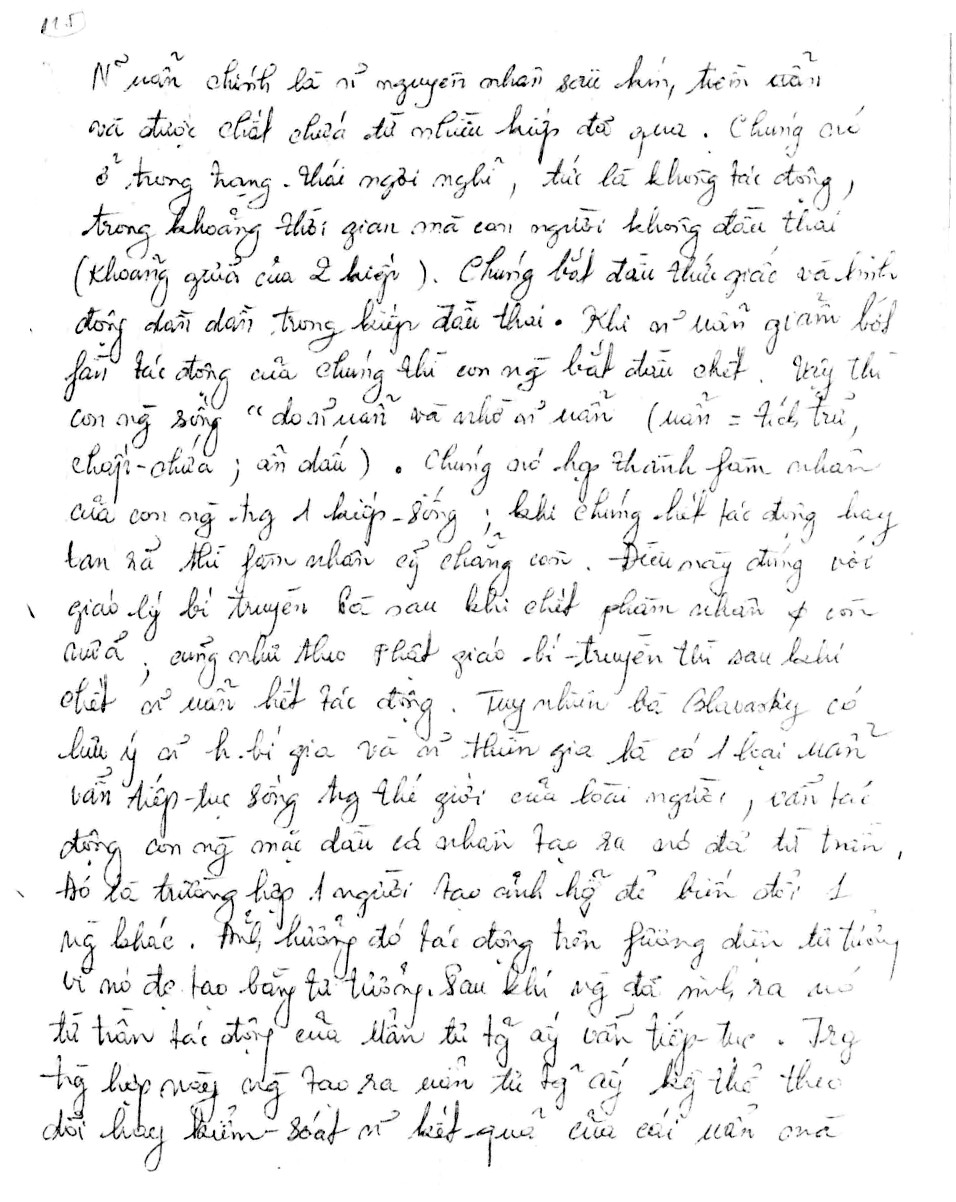 115
N~ uẩn chính là n~ nguyên nhân sâu kín, tiềm ẩn
và được chất chứa từ nhiều kiếp đã qua. Chúng nó
ở trong trạng-thái ngơi nghỉ, tức là không tác động,
trong khoảng thời gian mà con người không đầu thai
(khoảng giữa của 2 kiếp). Chúng bắt đầu thức giấc và hành
động dần dần trong kiếp đầu thai. Khi n~ uẩn giảm bớt
fần tác động của chúng thì con ng̃ bắt đầu chết. Vậy thì
con ng̃ sống "do n~ uẩn và nhờ n~ uẩn (uẩn = tích trữ,
chấp-chứa; ẩn dấu). Chúng nó họp thành fàm nhân
của con ng̃ -trg 1 kiếp-sống; khi chúng hết tác động hay
tan rã thì fàm nhân cũ chẳng còn. Điều này đúng với
giáo lý bí truyền là sau khi chết phàm nhân còn
nữa, cũng như theo Phật giáo bí-truyền thì sau khi
chết n~ uẩn hết tác động. Tuy nhiên bà Blavasky có
lưu ý n~ h. bí gia và n~ thiền gia là có 1 loại uẩn
vẫn tiếp-tục sống trg thế giới của loài người, vẫn tác
động con ng̃ mặc dầu cá nhân tạo ra nó đã từ trần,
Đó là trường hợp 1 người tạo ảnh hg̃ để biến đổi 1
ng̃ khác. Ảnh hưởng đó tác động trên fương diện tư tưởng
vì nó đc tạo bằng tư tưởng. Sau khi ng̃ đã sinh ra nó
từ trần tác động của Uẩn tư tg̃ ấy vẫn tiếp-tục. Trg
trg̃ hợp này ng̃ tạo ra uẩn tư tg̃ ấy kg̃ thể theo
dõi hay kiểm-soát n~ kết-quả của cái uẩn mà